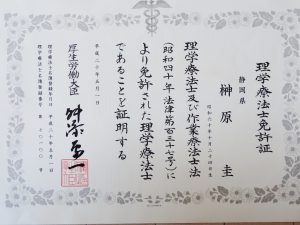 理学療法士免許証
静岡県
榊原 圭
昭和六十年十月二十四日生
理学療法士及び作業療法士法
(昭和四十年法律第百三十七号)に
より免許された理学療法士
であることを証明する
平成二十年五月一日
厚生労働大臣
舛添要一
理学療法士名簿登録年月日 平成二十年五月一日
理学療法士名簿登録番号 第七〇一〇〇号